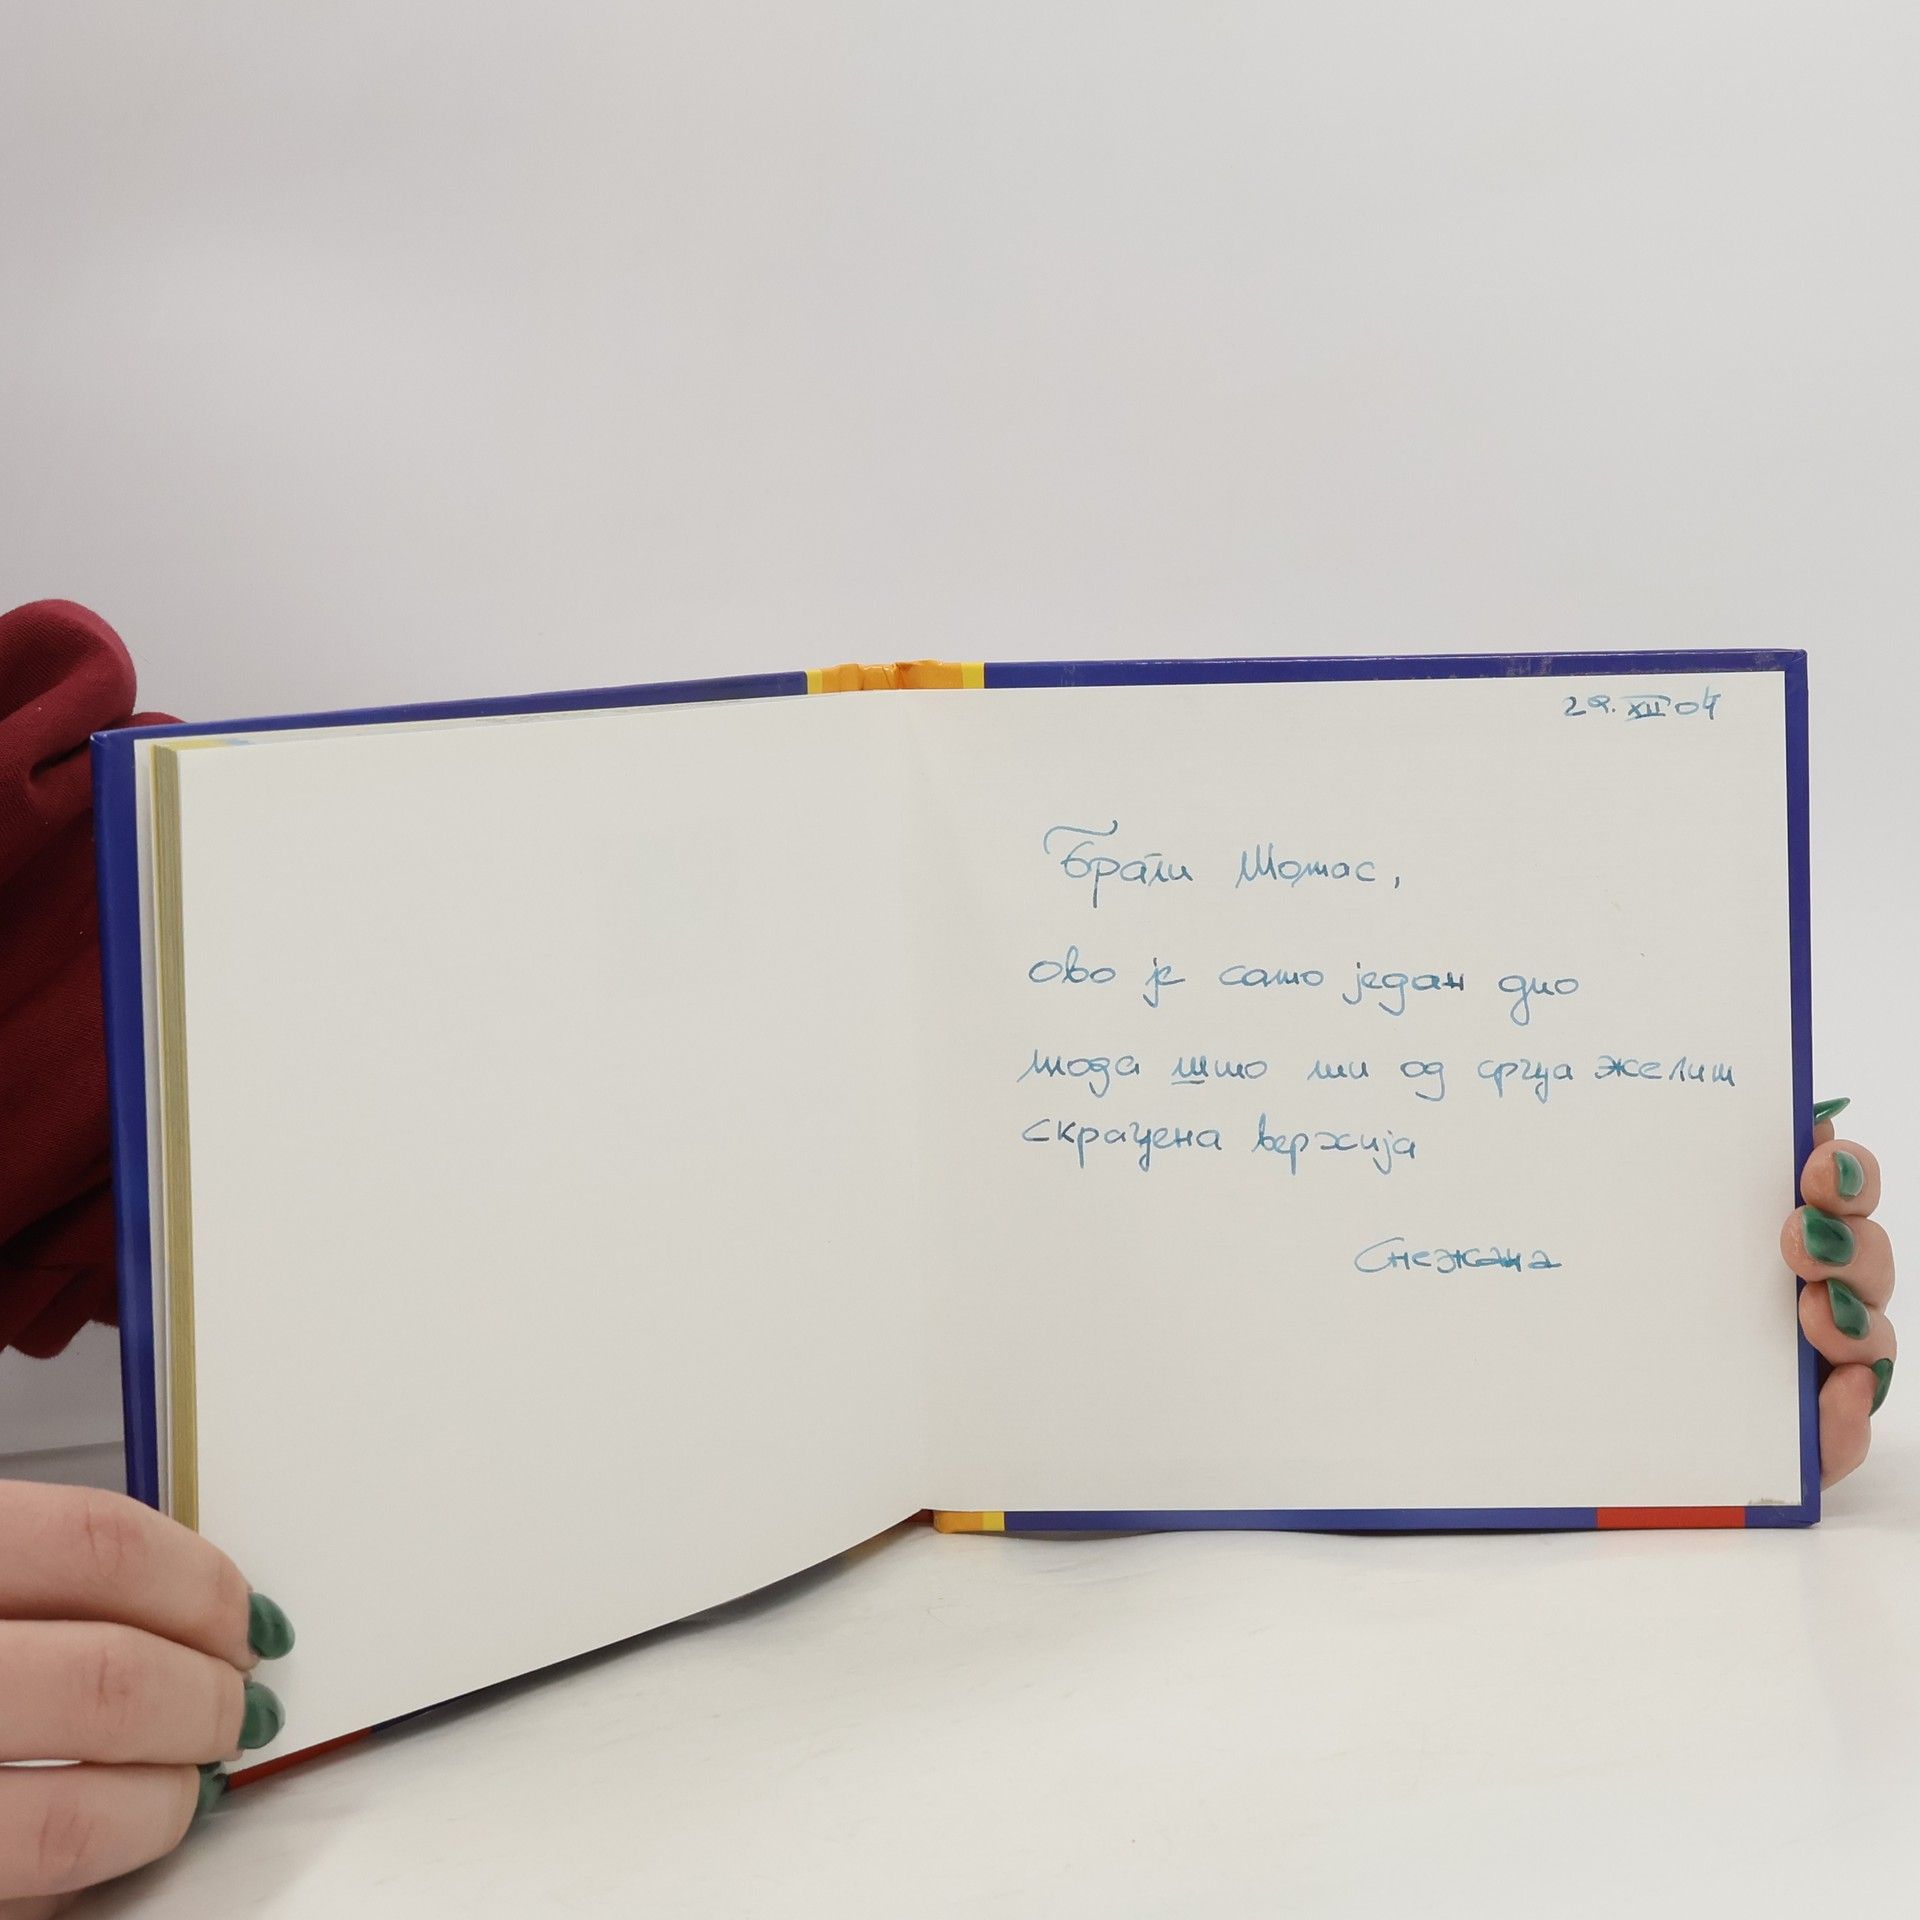 29. XII 04
Драги Томас,
ово је само један дио
тога што ти од срца желим
скраћена верзија
Снежана